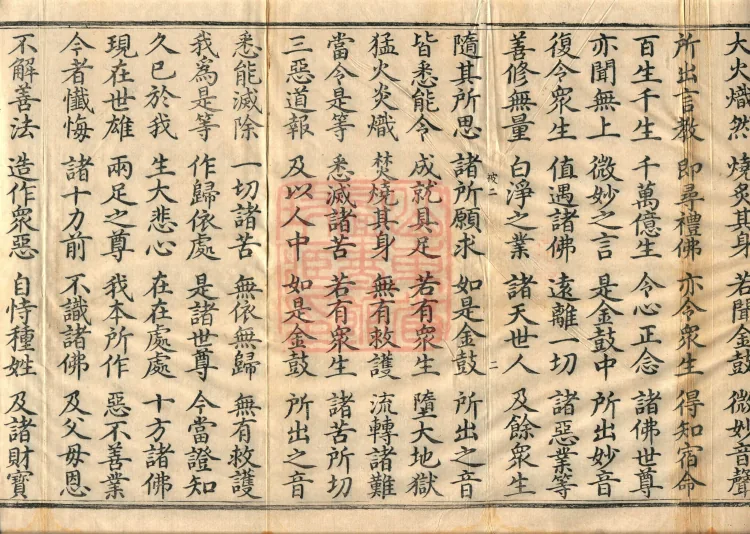 大火熾然 燒炙其身 若聞金鼓 微妙音聲
所出言教 即尋禮佛 亦令眾生 得知宿命
百生千生 千萬億生 令心正念 諸佛世尊
亦聞無上 微妙之言 是金鼓中 所出妙音
復令眾生 值遇諸佛 遠離一切 諸惡業等
善修無量 白淨之業 諸天世人 及餘眾生
隨其所思 諸所願求 如是金鼓 所出之音
皆悉能令 成就具足 若有眾生 墮大地獄
猛火炎熾 焚燒其身 無有救護 流轉諸難
當令是等 悉滅諸苦 若有眾生 諸苦所切
三惡道報 及以人中 如是金鼓 所出之音
悉能滅除 一切諸苦 無依無歸 無有救護
我為是等 作歸依處 是諸世尊 今當證知
久已於我 生大悲心 在在處處 十方諸佛
現在世雄 兩足之尊 我本所作 惡不善業
今者懺悔 諸十力前 不識諸佛 及父母恩
不解善法 造作眾惡 自恃種姓 及諸財寶